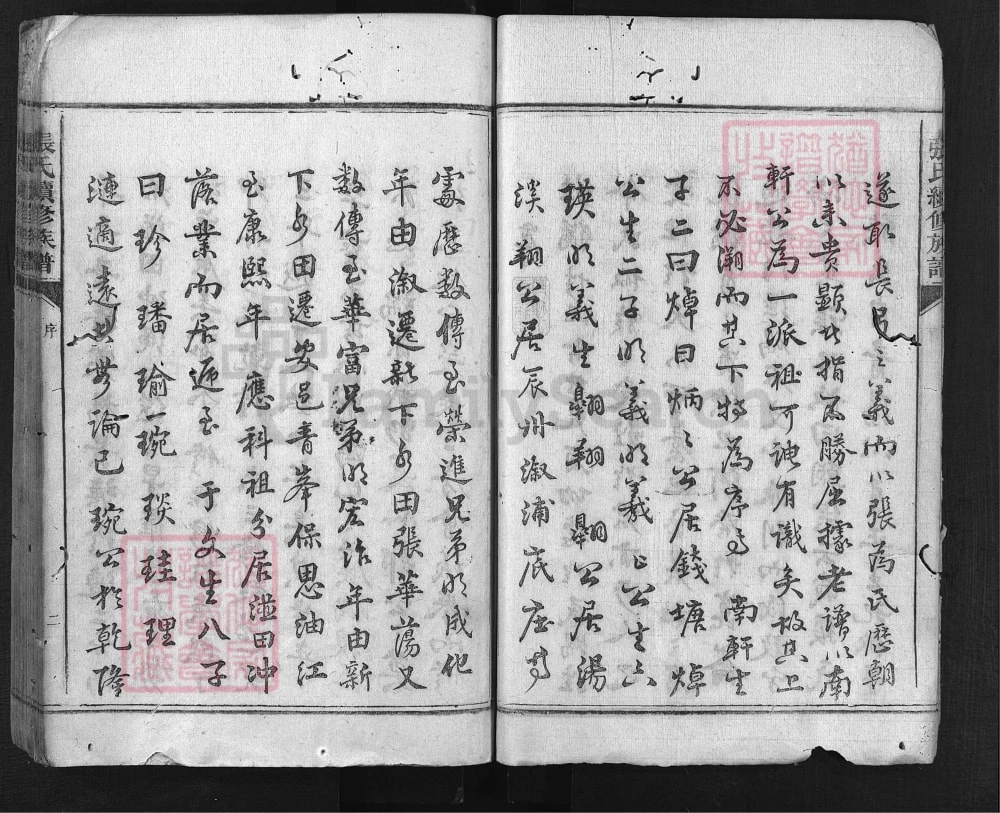 張氏續修族譜
遂取長弓之義而以張為氏歷朝
以來貴顯者指不勝屈據老譜以南
軒公為一派祖可謂有識矣故其上
不必溯而其下特為序焉 南軒生
子二曰焯曰炳炳公居錢塘焯
公生二子明義明羲公生六
瑛明義生翱翔翺翺公居湯
溪翔公居辰州溆浦底庄等
處歷數傳至榮進兄弟明成化
年由溆遷新下分田張華蕩又
數傳至華富兄弟明宏治年由新
下分田遷安邑青峯保思油江
至康熙年應科祖分居溢田冲
落業而居延至于文生八子
曰珍璠瑜一琬琰珪理
漣適遠者無論已琬公於乾隆
張氏續修族譜
序
二
FamilySearch